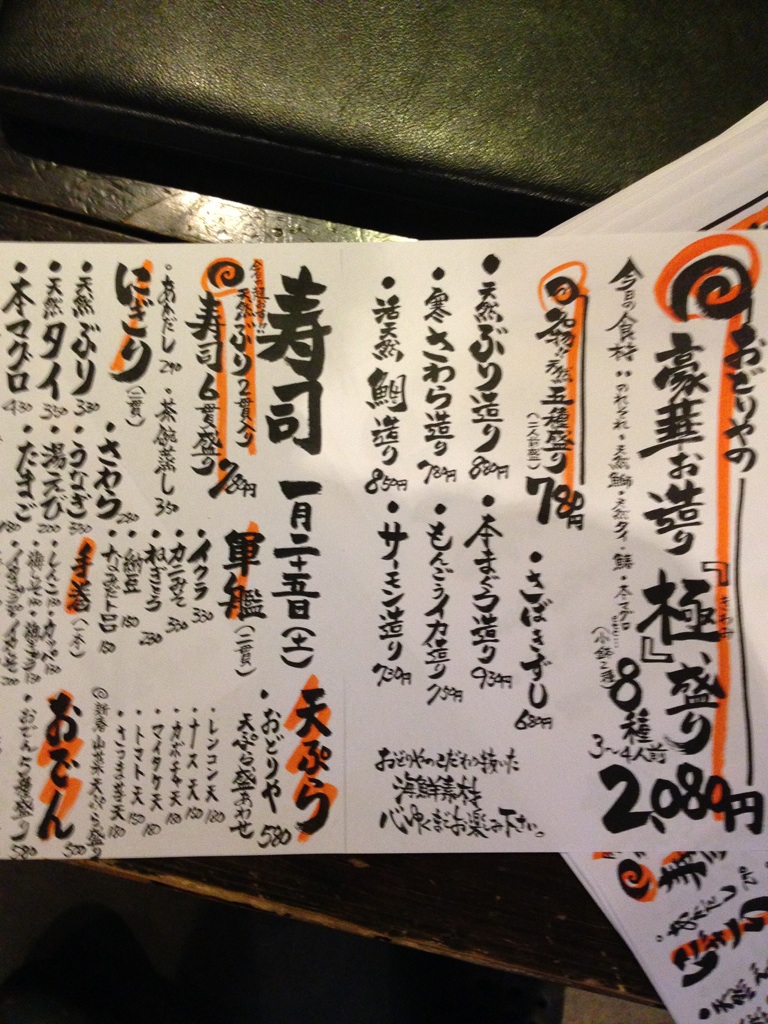 おどりやの
豪華お造り『極』盛り
きわみ
8種
3〜4人前
2,080円
今日の食材
・のれそれ・天然鰤・天然タイ・鯖・本マグロ
(小鉢二種)
天然五種盛り
(二人前盛)
780円
・さばきずし 680円
・天然ぶり造り 880円
・本まぐろ造り 930円
・寒さわら造り 780円
・もんごうイカ造り 750円
・活天然鯛造り 850円
・サーモン造り 730円
おどりやのこだわり抜いた
海鮮素材
心ゆくまでお楽しみ下さい。
寿司 一月二十五日(土)
天然ぶり2貫入り
寿司6貫盛り 780円
・あかだし 290
・茶碗蒸し 350
にぎり(二貫)
・天然ぶり 330
・天然タイ 330
・本マグロ 430
・さわら 280
・うなぎ 330
・湯えび 200
・たまご 180
軍艦(二貫)
・イクラ 330
・カニみそ 330
・ねぎとろ 230
・納豆 150
手巻(一本)
・しんこ 150
・カッパ 150
天ぷら
・おどりや
天ぷら盛あわせ 580
・レンコン天 180
・ナース天 150
・カボチャ天 150
・マイタケ天 180
・トマト天 150
・さつま芋天 150
◎新春山菜天ぷら盛り 500
おでん
・おでん5種盛り 580